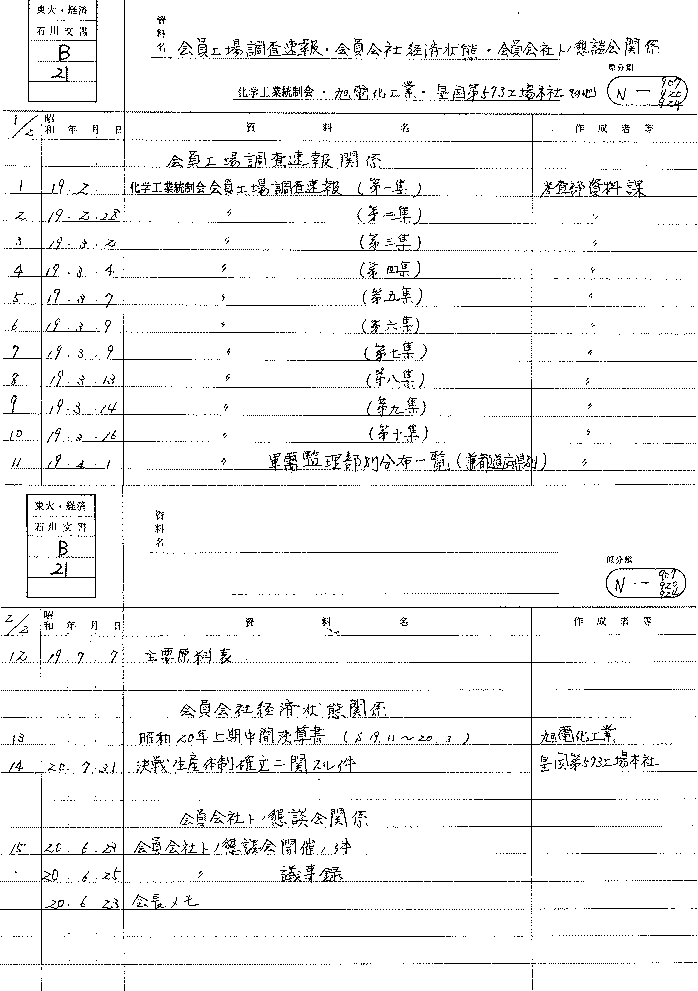 東大・経済
石川文書
B
21
資料名 会員工場調査速報・会員会社経済状態・会員会社トノ懇談会関係
化学工業統制会・旭電化工業・皇国第573工場本社 その他
原分類 N-907 920 924
1/2 昭和 年 月 日 資料名 作成者等
会員工場調査速報関係
1 19.2 化学工業統制会 会員工場調査速報 (第一集) 資料課
2 19.2.28 〃 (第二集) 〃
3 19.3.2 〃 (第三集) 〃
4 19.3.4 〃 (第四集) 〃
5 19.3.7 〃 (第五集) 〃
6 19.3.9 〃 (第六集) 〃
7 19.3.9 〃 (第七集) 〃
8 19.3.13 〃 (第八集) 〃
9 19.3.14 〃 (第九集) 〃
10 19.3.16 〃 (第十集) 〃
11 19.4.1 〃 軍需監理部別分布一覧 (兼都道府県別) 〃
東大・経済
石川文書
B
21
資料名
原分類 N-907 920 924
2/2 昭和 年 月 日 資料名 作成者等
12 19.7.7 主要原料表
会員会社経済状態関係
13 昭和20年上期中間決算書 (S19.11~20.3) 旭電化工業
14 20.7.31 決戦生産体制確立ニ関スル件 皇国第573工場本社
会員会社トノ懇談会関係
15 20.6.23 会員会社トノ懇談会開催ノ件
・ 20.6.25 〃 議事録
20.6.23 会長メモ